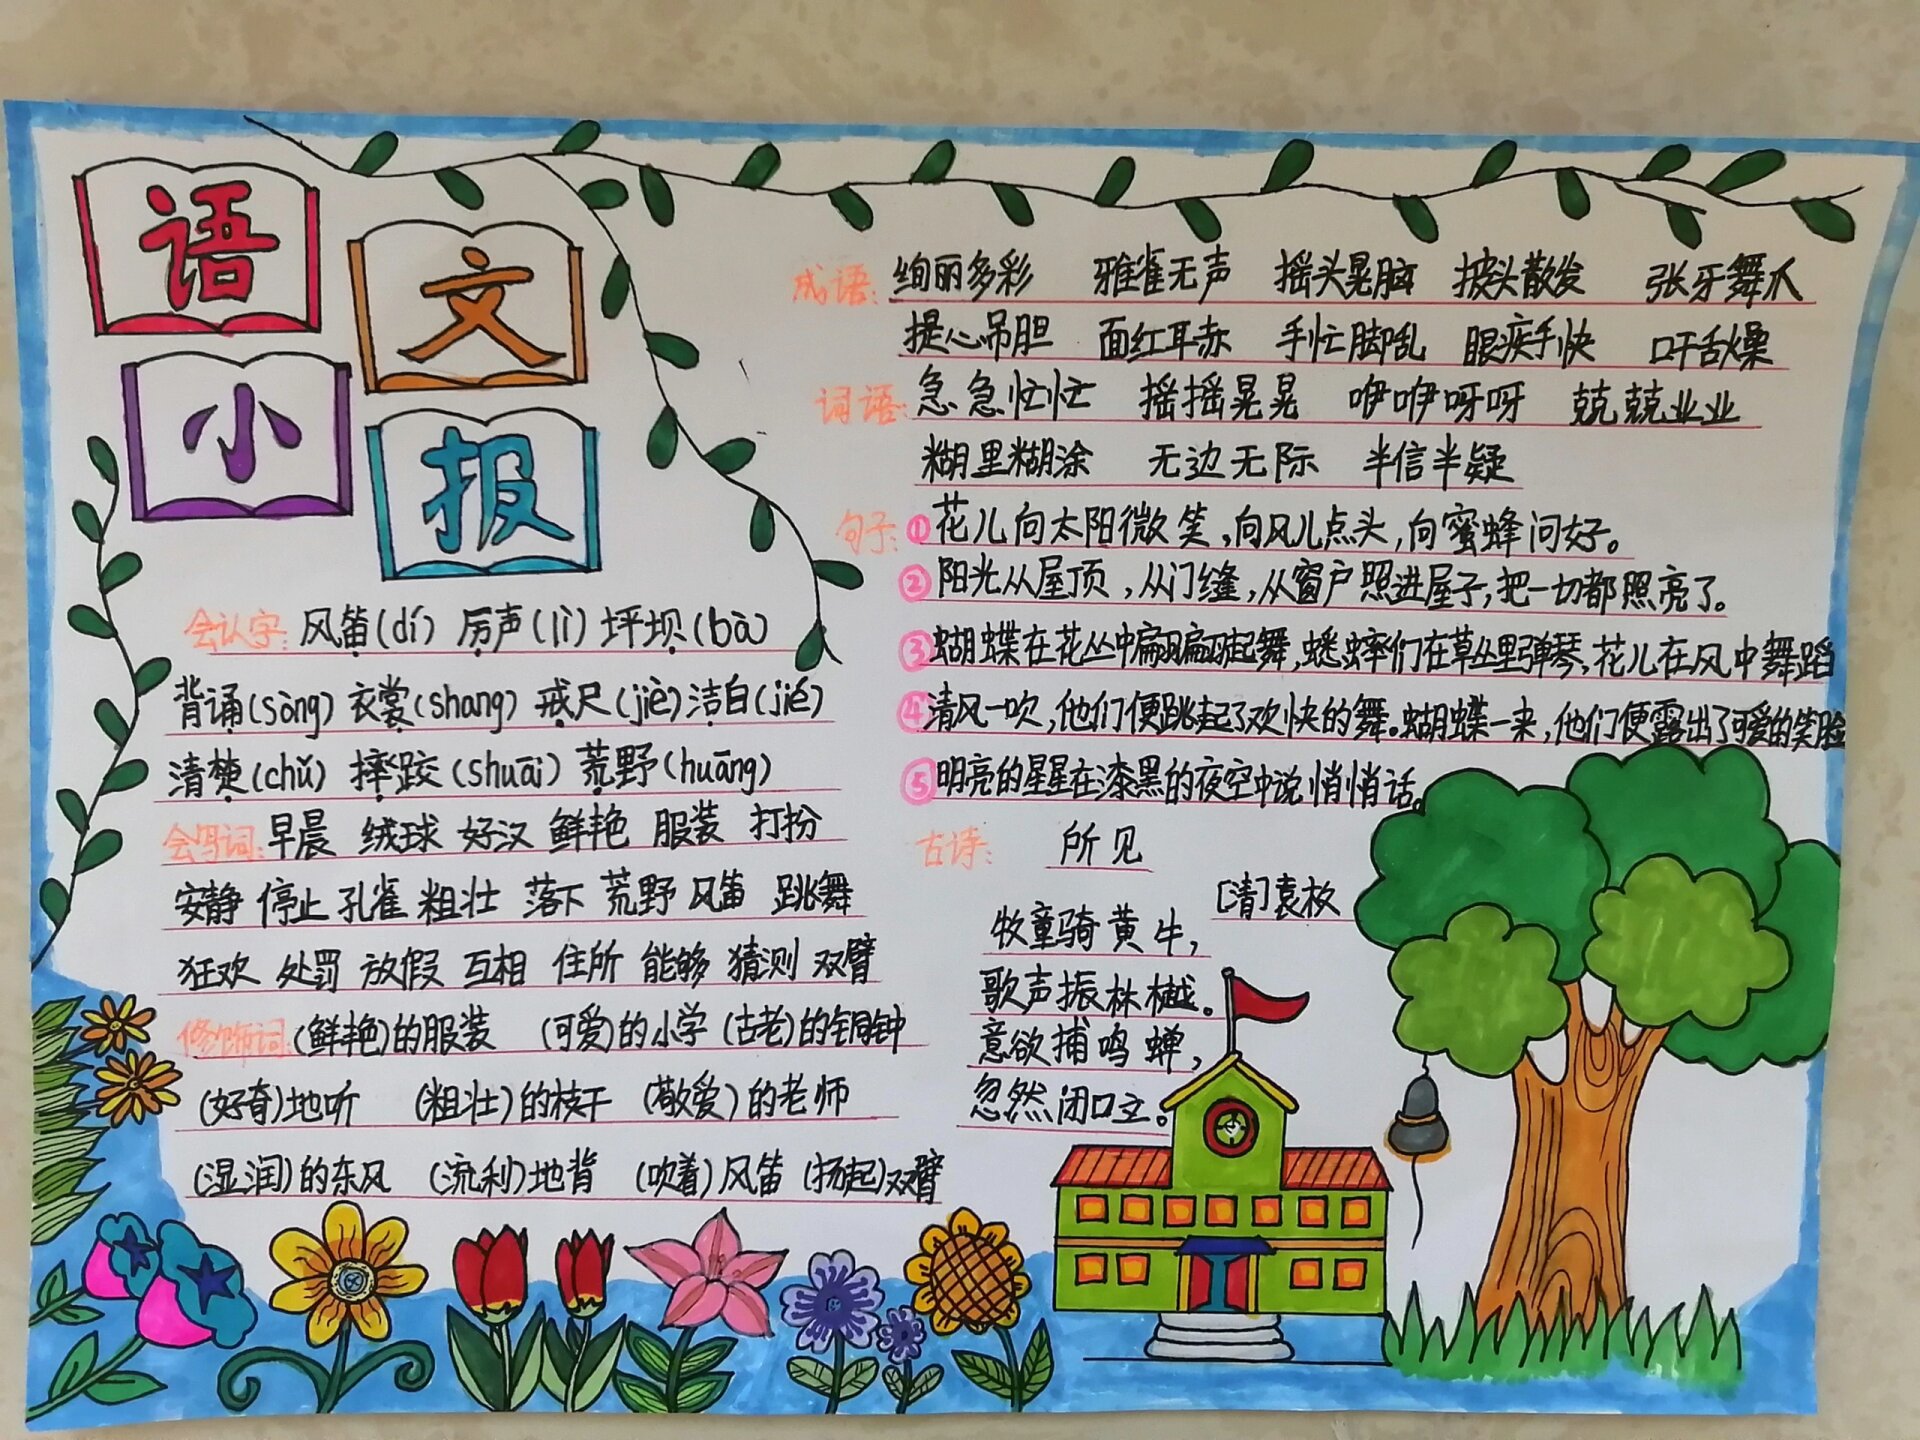 语文
小报
会认字: 风笛(dí) 厉声(lì) 坪坝(bà)
背诵(sòng) 衣裳(shang) 戒尺(jiè) 洁白(jié)
清楚(chǔ) 摔跤(shuāi) 荒野(huāng)
会写词: 早晨 绒球 好汉 鲜艳 服装 打扮
安静 停止 孔雀 粗壮 落下 荒野 风笛 跳舞
狂欢 处罚 放假 互相 住所 能够 猜测 双臂
修饰词: (鲜艳)的服装 (可爱)的小学 (古老)的铜钟
(好奇)地听 (粗壮)的枝干 (敬爱)的老师
(湿润)的东风 (流利)地背 (吹着)风笛 (扬起)双臂
成语: 绚丽多彩 鸦雀无声 摇头晃脑 披头散发 张牙舞爪
提心吊胆 面红耳赤 手忙脚乱 眼疾手快 口干舌燥
词语: 急急忙忙 摇摇晃晃 咿咿呀呀 兢兢业业
糊里糊涂 无边无际 半信半疑
句子: ①花儿向太阳微笑,向风儿点头,向蜜蜂问好。
②阳光从屋顶,从门缝,从窗户照进屋子,把一切都照亮了。
③蝴蝶在花丛中翩翩起舞,蟋蟀们在草丛里弹琴,花儿在风中舞蹈
④清风一吹,他们便跳起了欢快的舞。蝴蝶一来,他们便露出了可爱的笑脸
⑤明亮的星星在漆黑的夜空中说悄悄话。
古诗: 所见
[清]袁枚
牧童骑黄牛,
歌声振林樾。
意欲捕鸣蝉,
忽然闭口立。